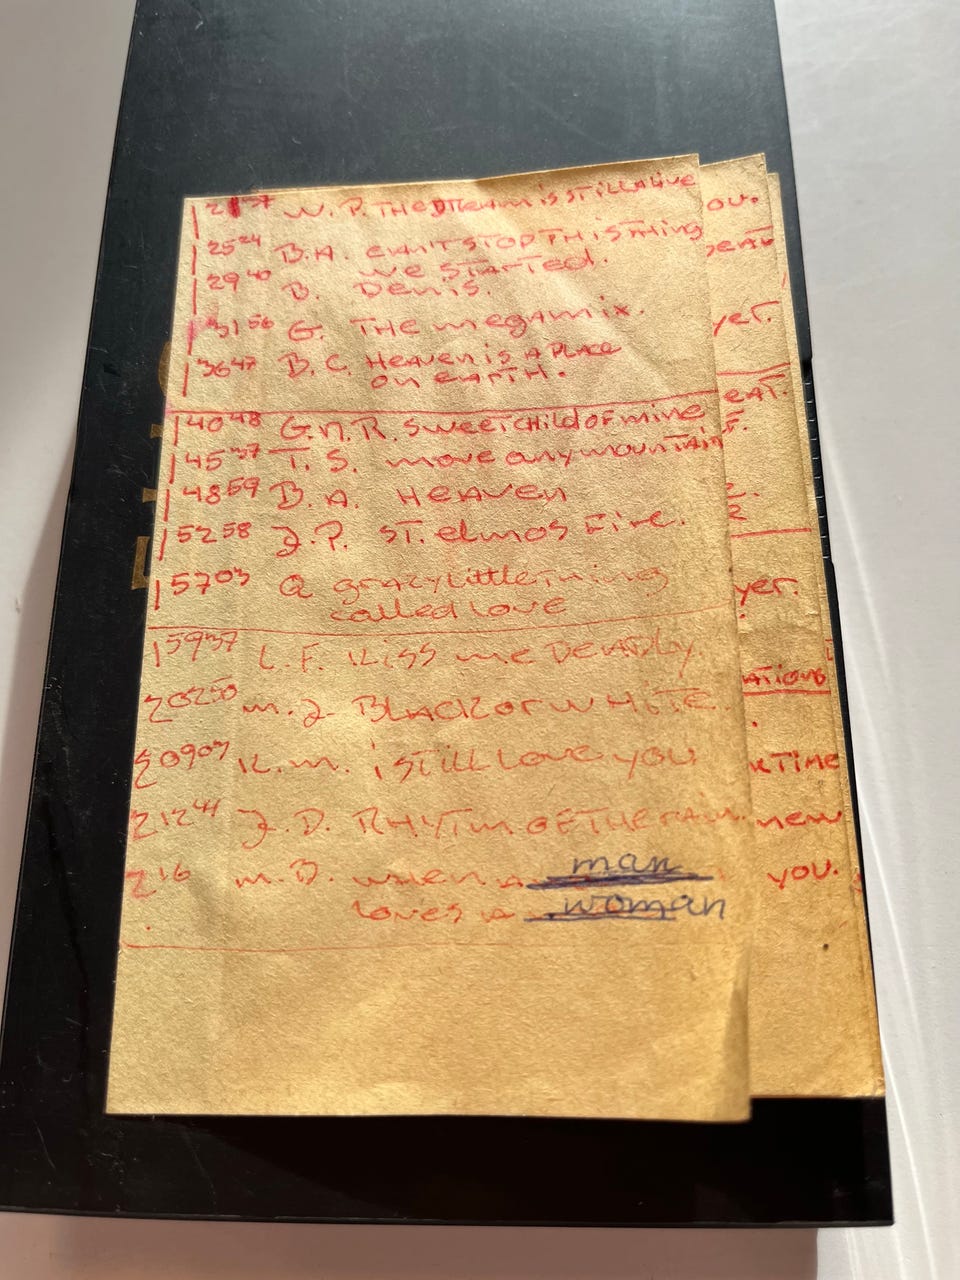 1 21 37 W.P. THE DREAM is STILL ALIVE
1 25 24 B.A. CAN'T STOP THIS THING
WE STARTED.
1 29 40 B. Denis.
1 31 56 G. THE megamix.
1 36 47 B.C. HEAVEN is A PLACE
on eARTH.
1 40 48 G.N.R. SWEET CHILD OF MINE
1 45 37 T.S. move any mountain
1 48 59 B.A. HEAVEN
1 52 58 J.P. ST. elmos Fire.
1 57 03 Q grazy little thing
called love
1 59 37 L.F. Kiss me Deadly.
2 02 50 m.J. BLACK OR WHITE.
2 09 07 K.m. i STILL Love you
2 12 41 J.D. RHYTM OF THE rain.
2 16 m.B. when A man
Loves A woman
ou.
yer.
eat.
F.
2.
2
yer.
ations
.
k Time
new
you.